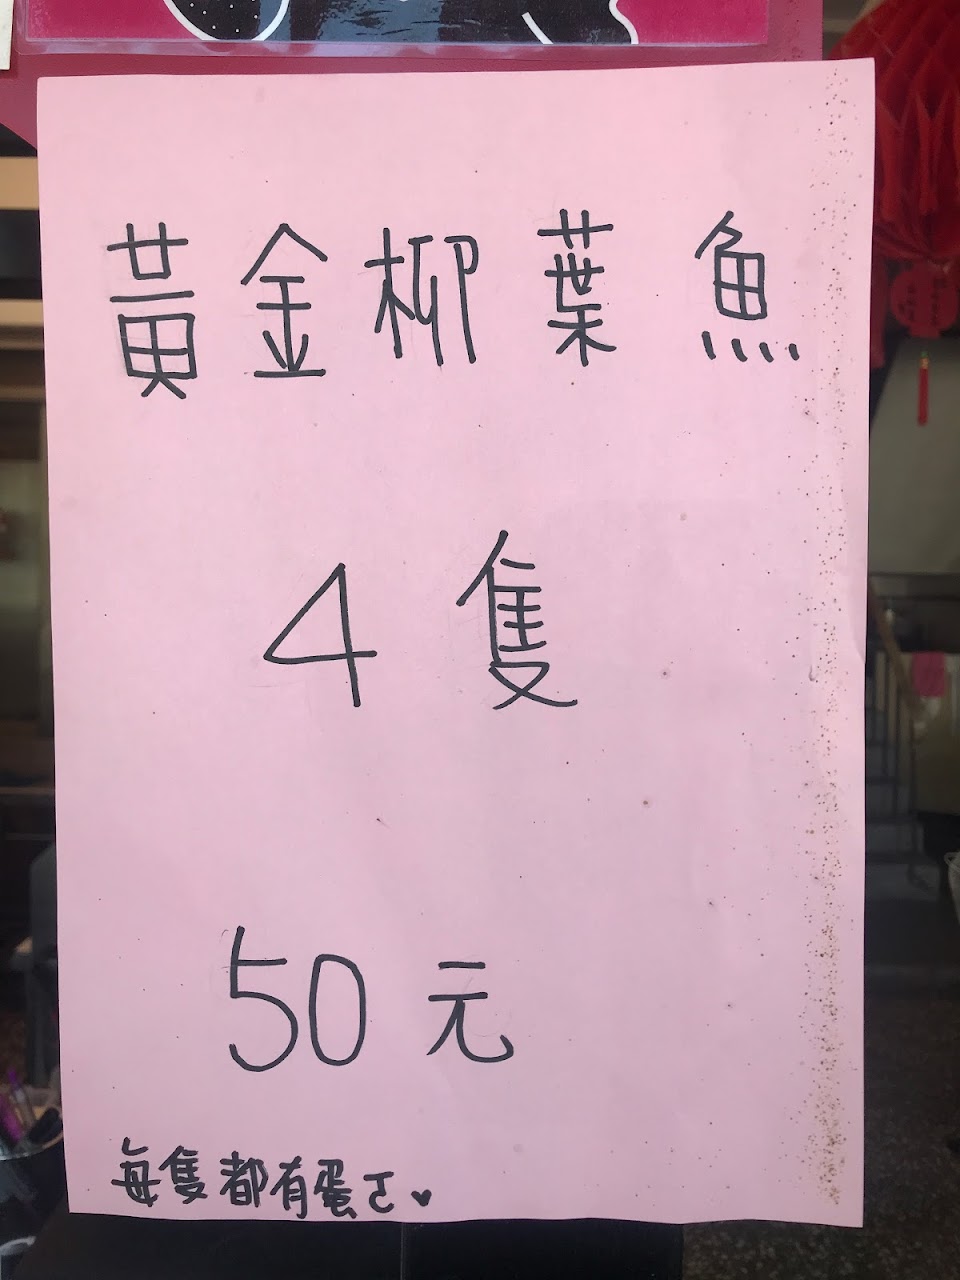 黃金柳葉魚
4隻
50元
每隻都有蛋ㄛ♥